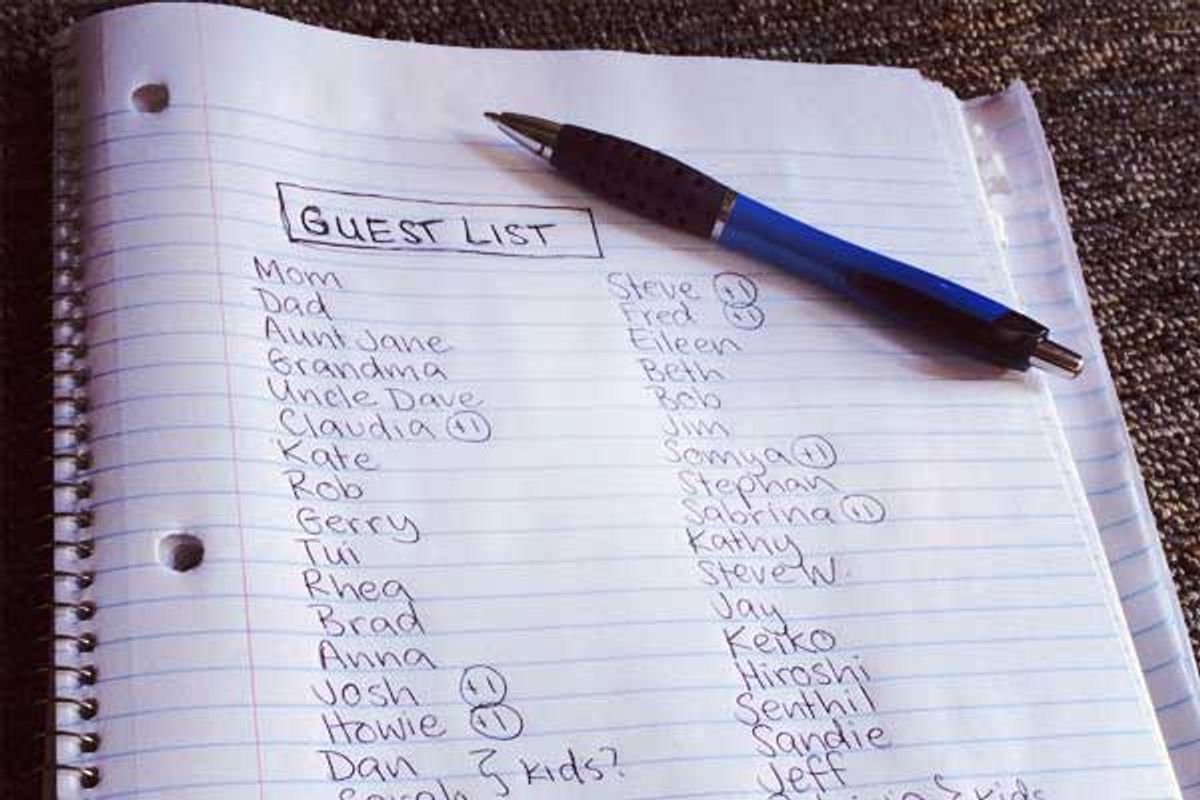 GUEST LIST
Mom
Dad
Aunt Jane
Grandma
Uncle Dave
Claudia +1
Kate
Rob
Gerry
Tui
Rhea
Brad
Anna
Josh +1
Howie +1
Dan } kids?
Sarah
Steve +1
Fred +1
Eileen
Beth
Bob
Jim
Somya +1
Stephan
Sabrina +1
Kathy
Steve W.
Jay
Keiko
Hiroshi
Senthil
Sandie
Jeff
} kids